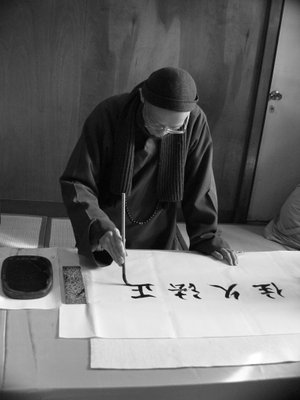 正法久住